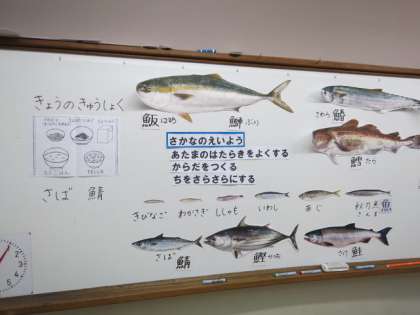 きょうのきゅうしょく
さば 鯖
鰤 ぶり
さわら 鰆
さかなのえいよう
あたまのはたらきをよくする
からだをつくる
ちをさらさらにする
鱈 たら
きびなご
わかさぎ
ししゃも
いわし
あじ
秋刀魚
さんま
さば 鯖
鰹 かつお
さけ 鮭